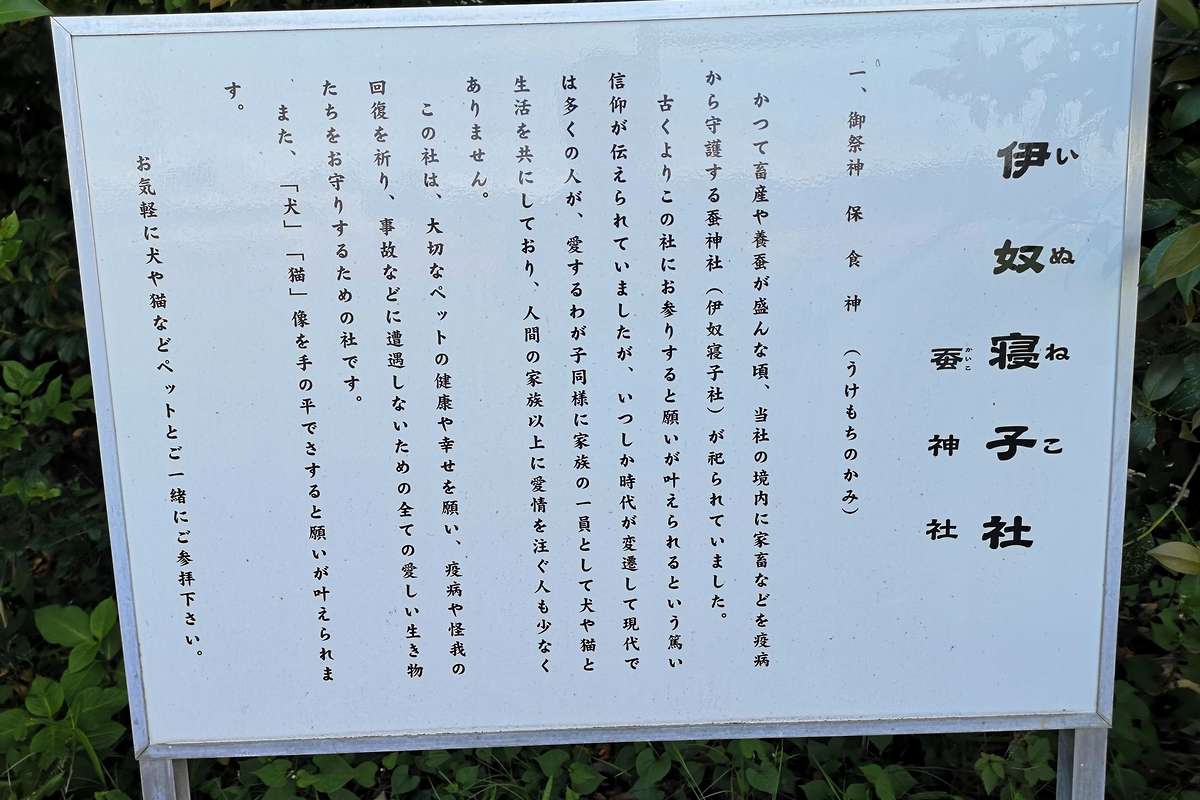 伊奴寝子社
いぬねこ
蚕神社
かいこ
一、御祭神 保食神 (うけもちのかみ)
かつて畜産や養蚕が盛んな頃、当社の境内に家畜などを疫病
から守護する蚕神社(伊奴寝子社)が祀られていました。
古くよりこの社にお参りすると願いが叶えられるという篤い
信仰が伝えられていましたが、いつしか時代が変遷して現代で
は多くの人が、愛するわが子同様に家族の一員として犬や猫と
生活を共にしており、人間の家族以上に愛情を注ぐ人も少なく
ありません。
この社は、大切なペットの健康や幸せを願い、疫病や怪我の
回復を祈り、事故などに遭遇しないための全ての愛しい生き物
たちをお守りするための社です。
また、「犬」「猫」像を手の平でさすると願いが叶えられま
す。
お気軽に犬や猫などペットとご一緒にご参拝下さい。